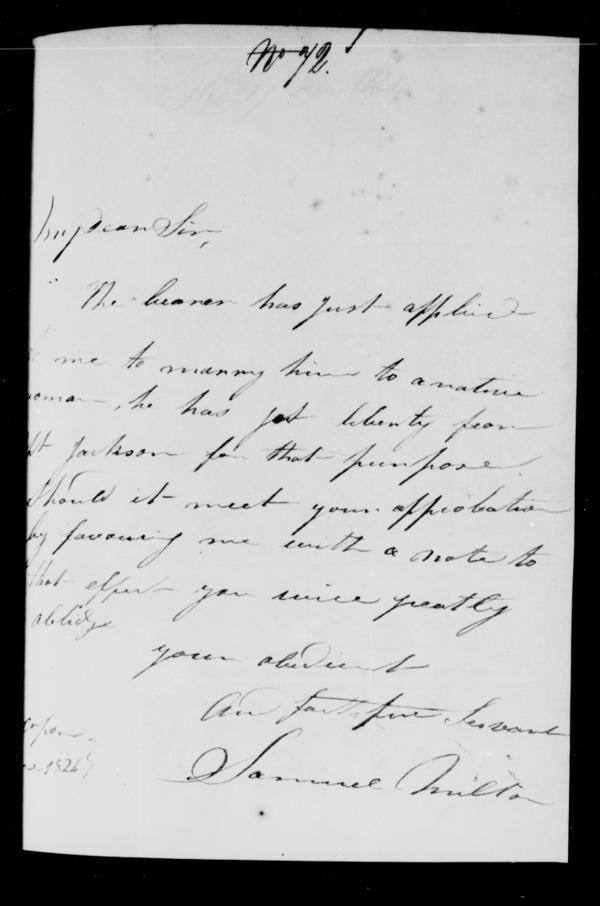 No 72.
My dear Sir,
The bearer has just applied
me to marry him to a native
woman, he has got liberty from
Jackson for that purpose.
Should it meet your approbation
by favouring me with a note to
that effect you will greatly
oblidge
your obedient
and faithful Servant
Samuel Milton
1824